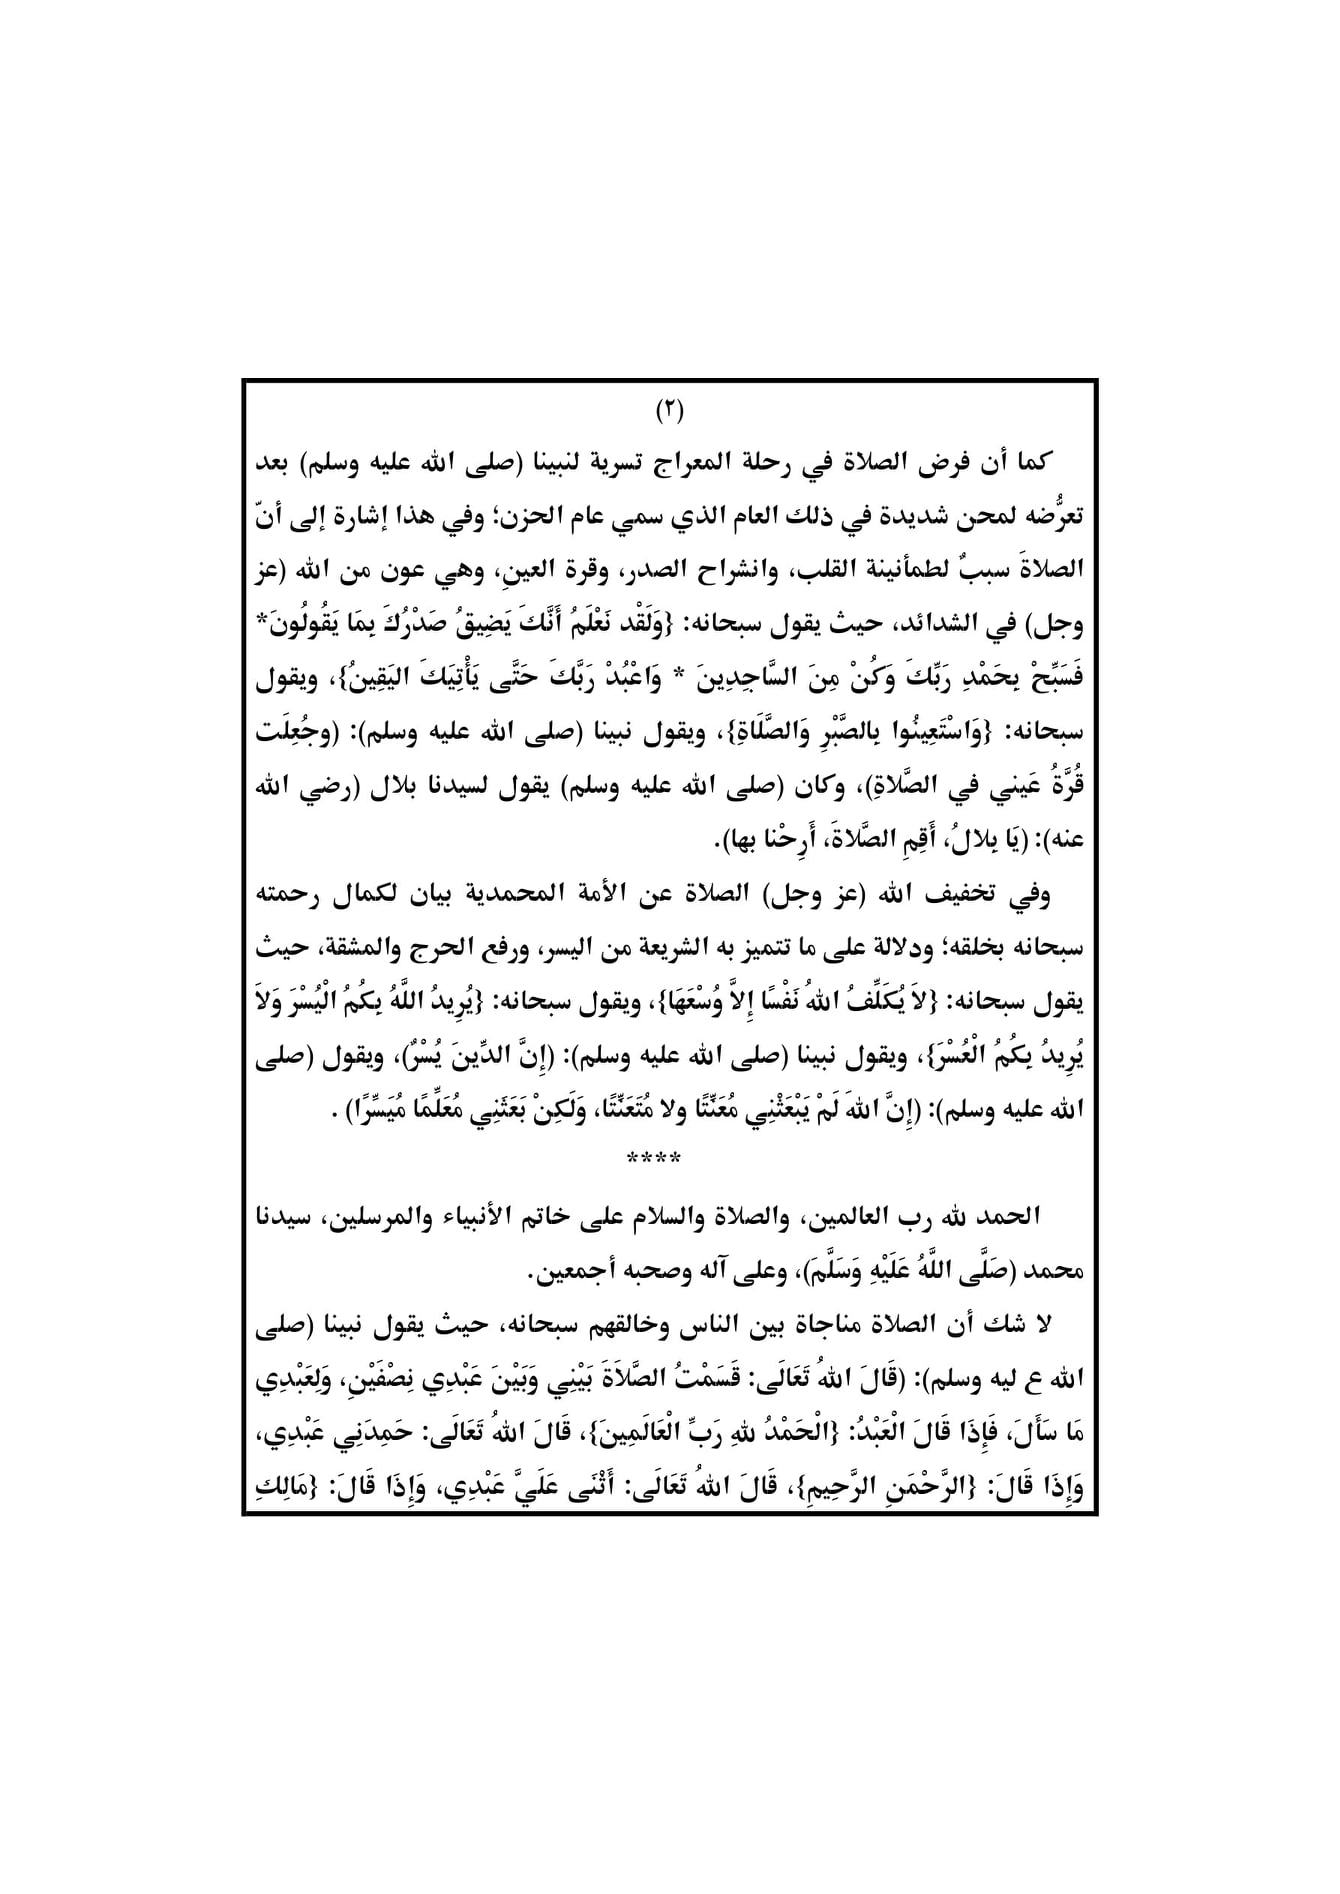 (٢)
كما أن فرض الصلاة في رحلة المعراج تسرية لنبينا (صلى الله عليه وسلم) بعد
تعرُّضه لمحن شديدة في ذلك العام الذي سمي عام الحزن؛ وفي هذا إشارة إلى أنّ
الصلاةَ سببٌ لطمأنينة القلب، وانشراح الصدر، وقرة العينِ، وهي عون من الله (عز
وجل) في الشدائد، حيث يقول سبحانه: {وَلَقْد نَعْلَمُ أَنَّكَ يَضِيقُ صَدْرُكَ بِمَا يَقُولُونَ*
فَسَبِّحْ بِحَمْدِ رَبِّكَ وَكُنْ مِنَ السَّاجِدِينَ * وَاعْبُدْ رَبَّكَ حَتَّى يَأْتِيَكَ اليَقِينُ}، ويقول
سبحانه: {وَاسْتَعِينُوا بِالصَّبْرِ وَالصَّلَاةِ}، ويقول نبينا (صلى الله عليه وسلم): (وجُعِلَت
قُرَّةُ عَيني في الصَّلاةِ)، وكان (صلى الله عليه وسلم) يقول لسيدنا بلال (رضي الله
عنه): (يَا بِلالُ، أَقِمِ الصَّلاةَ، أَرِحْنا بها).
وفي تخفيف الله (عز وجل) الصلاة عن الأمة المحمدية بيان لكمال رحمته
سبحانه بخلقه؛ ودلالة على ما تتميز به الشريعة من اليسر، ورفع الحرج والمشقة، حيث
يقول سبحانه: {لاَ يُكَلِّفُ اللهُ نَفْسًا إِلاَّ وُسْعَهَا}، ويقول سبحانه: {يُرِيدُ اللَّهُ بِكُمُ الْيُسْرَ وَلاَ
يُرِيدُ بِكُمُ الْعُسْرَ}، ويقول نبينا (صلى الله عليه وسلم): (إِنَّ الدِّينَ يُسْرٌ)، ويقول (صلى
الله عليه وسلم): (إِنَّ اللهَ لَمْ يَبْعَثْنِي مُعَنِّتًا ولا مُتَعَنِّتًا، وَلَكِنْ بَعَثَنِي مُعَلِّمًا مُيَسِّرًا) .
****
الحمد لله رب العالمين، والصلاة والسلام على خاتم الأنبياء والمرسلين، سيدنا
محمد (صَلَّى اللَّهُ عَلَيْهِ وَسَلَّمَ)، وعلى آله وصحبه أجمعين.
لا شك أن الصلاة مناجاة بين الناس وخالقهم سبحانه، حيث يقول نبينا (صلى
الله ع ليه وسلم): (قَالَ اللهُ تَعَالَى: قَسَمْتُ الصَّلاَةَ بَيْنِي وَبَيْنَ عَبْدِي نِصْفَيْنِ، وَلِعَبْدِي
مَا سَأَلَ، فَإِذَا قَالَ الْعَبْدُ: {الْحَمْدُ للهِ رَبِّ الْعَالَمِينَ}، قَالَ اللهُ تَعَالَى: حَمِدَنِي عَبْدِي،
وَإِذَا قَالَ: {الرَّحْمَنِ الرَّحِيمِ}، قَالَ اللهُ تَعَالَى: أَثْنَى عَلَيَّ عَبْدِي، وَإِذَا قَالَ: {مَالِكِ